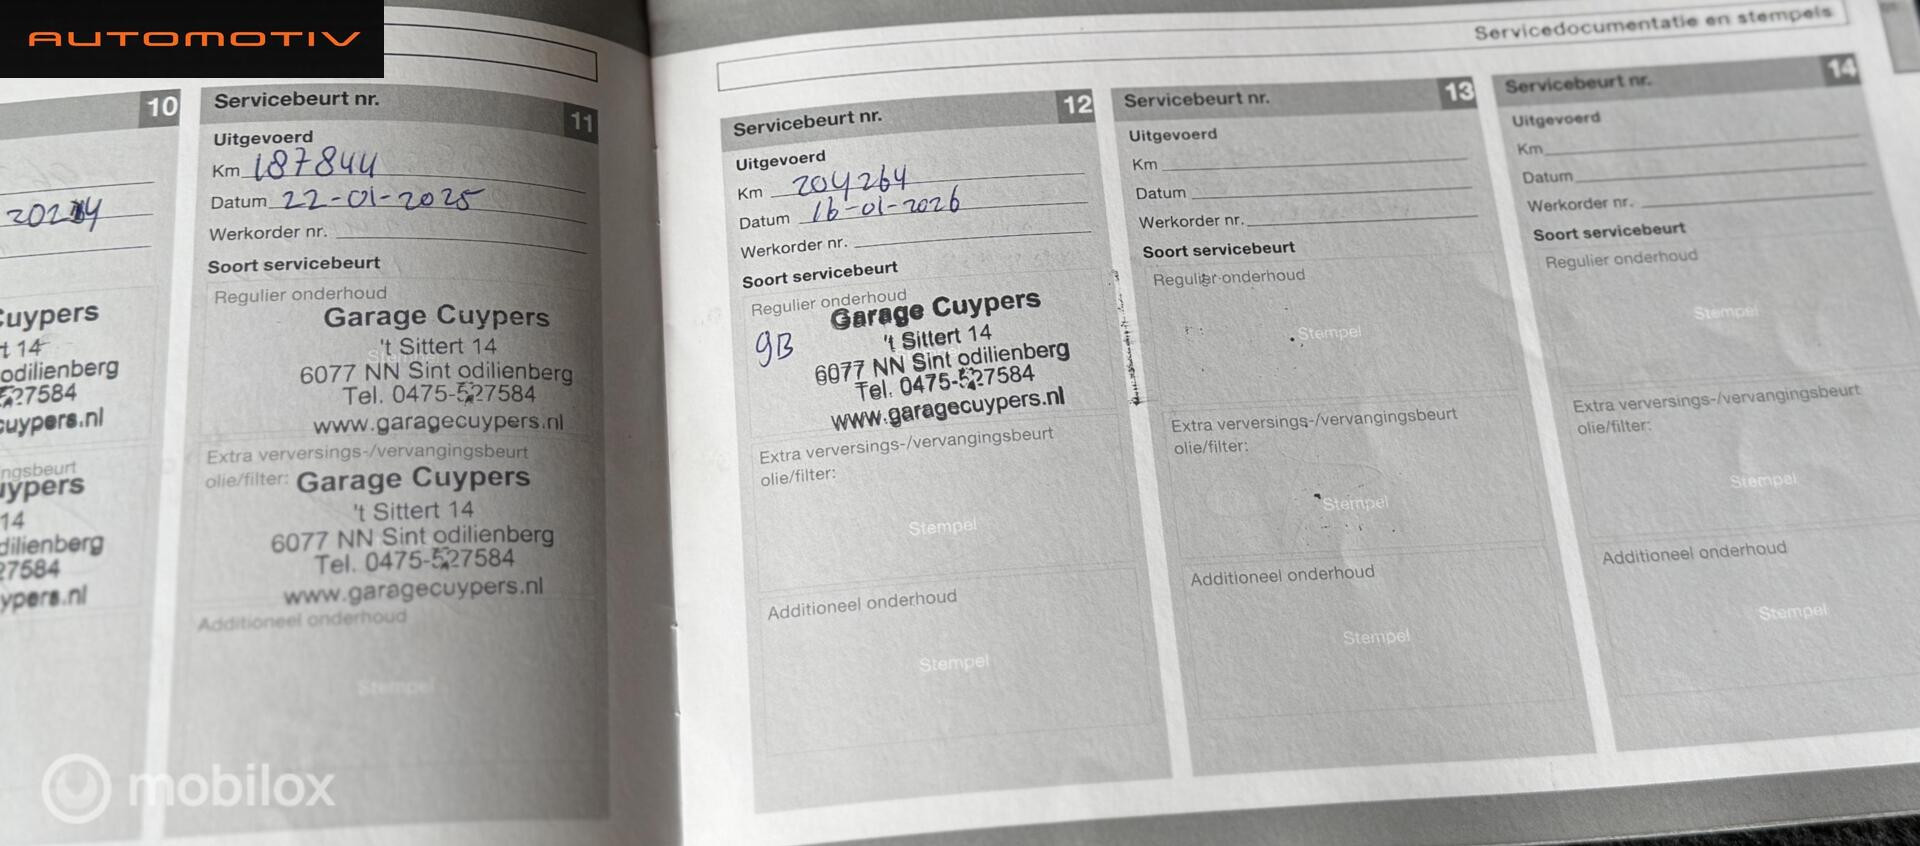 AUTOMOTIV
Servicedocumentatie en stempels
10
2024
Cuypers
t 14
odilienberg
527584
cuypers.nl
ngsbeurt
uypers
14
dilienberg
27584
ypers.nl
Servicebeurt nr. 11
Uitgevoerd
Km 187844
Datum 22-01-2025
Werkorder nr.
Soort servicebeurt
Regulier onderhoud
Garage Cuypers
't Sittert 14
6077 NN Sint odilienberg
Tel. 0475-527584
www.garagecuypers.nl
Extra verversings-/vervangingsbeurt
olie/filter: Garage Cuypers
't Sittert 14
6077 NN Sint odilienberg
Tel. 0475-527584
www.garagecuypers.nl
Additioneel onderhoud
Stempel
Servicebeurt nr. 12
Uitgevoerd
Km 204264
Datum 16-01-2026
Werkorder nr.
Soort servicebeurt
Regulier onderhoud
Garage Cuypers
gB
't Sittert 14
6077 NN Sint odilienberg
Tel. 0475-527584
www.garagecuypers.nl
Extra verversings-/vervangingsbeurt
olie/filter:
Stempel
Additioneel onderhoud
Stempel
Servicebeurt nr. 13
Uitgevoerd
Km
Datum
Werkorder nr.
Soort servicebeurt
Regulier onderhoud
Stempel
Extra verversings-/vervangingsbeurt
olie/filter:
Stempel
Additioneel onderhoud
Stempel
Servicebeurt nr. 14
Uitgevoerd
Km
Datum
Werkorder nr.
Soort servicebeurt
Regulier onderhoud
Stempel
Extra verversings-/vervangingsbeurt
olie/filter:
Stempel
Additioneel onderhoud
Stempel
mobilox